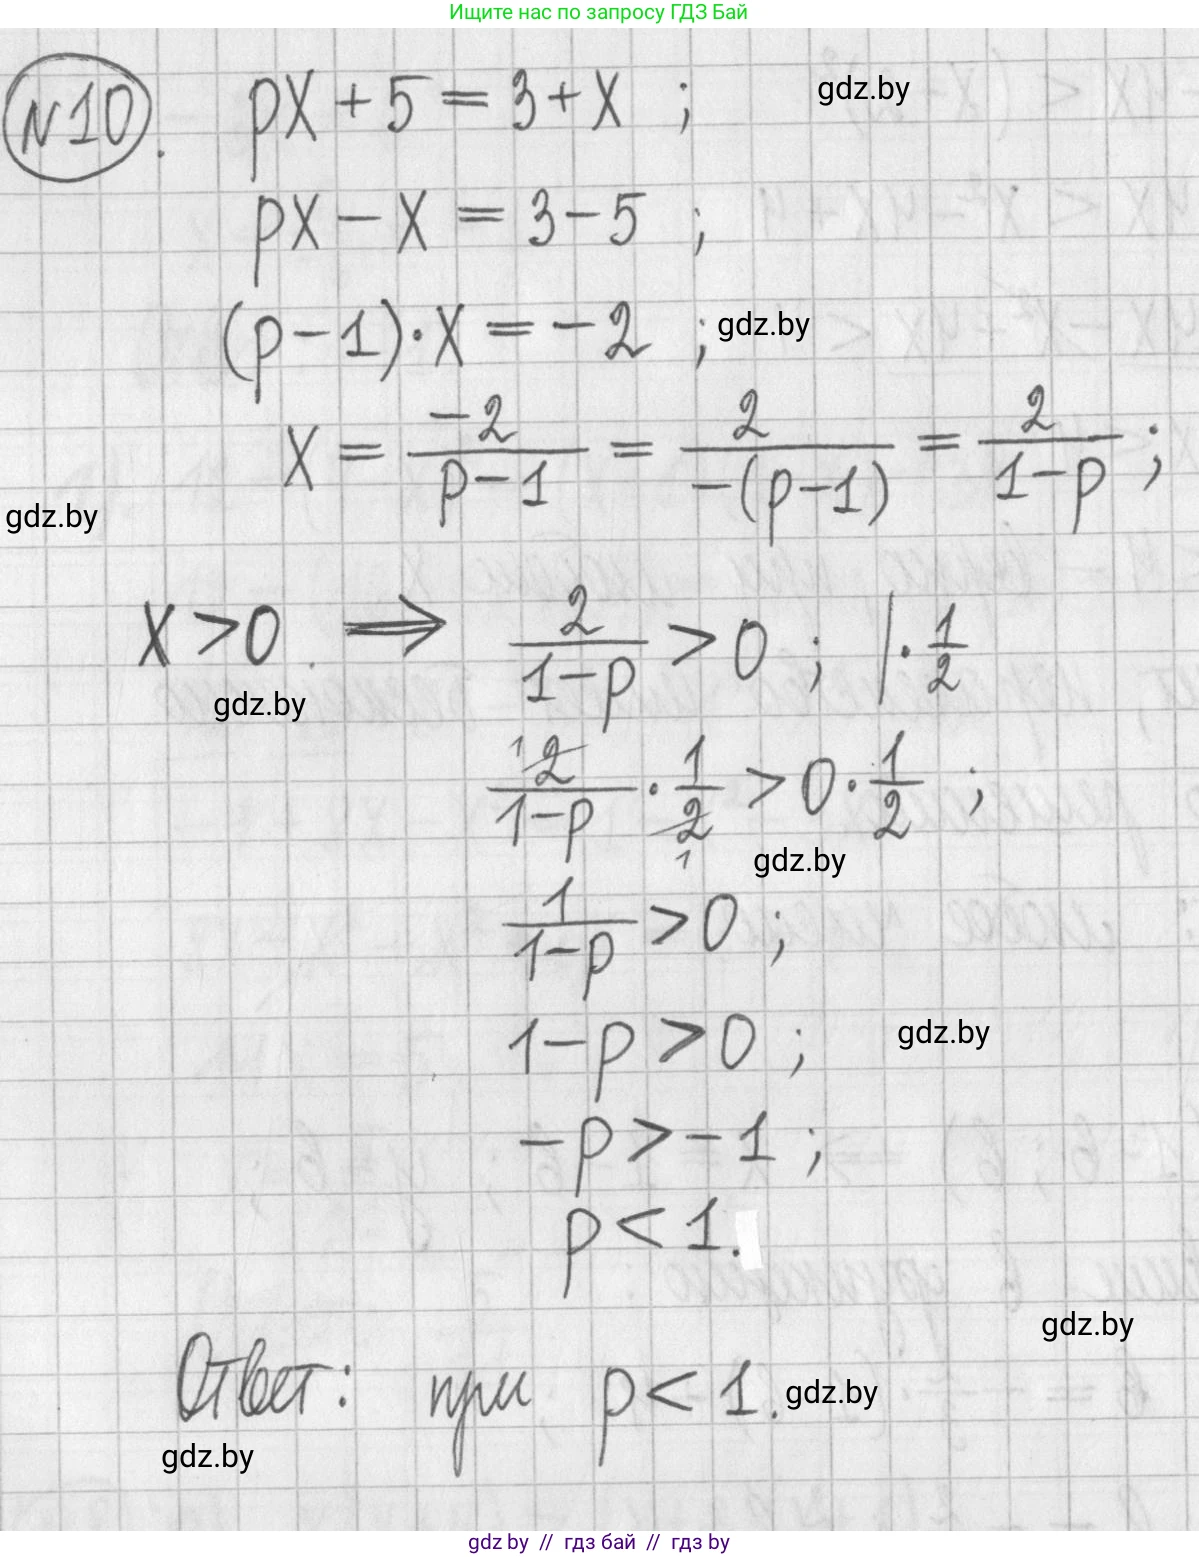 Ищите нас по запросу ГДЗ Бай
№10. px + 5 = 3 + x ; gdz.by
px − x = 3 − 5 ;
(p − 1) · x = −2 ; gdz.by
x = −2/(p − 1) = 2/(−(p − 1)) = 2/(1 − p) ;
gdz.by
x > 0. ⇒ 2/(1 − p) > 0 ; | · 1/2
gdz.by
2/(1 − p) · 1/2 > 0 · 1/2 ;
gdz.by
1/(1 − p) > 0 ;
1 − p > 0 ; gdz.by
−p > −1 ;
p < 1.
gdz.by
Ответ: при p < 1. gdz.by
gdz.by
gdz.by // гдз бай // гдз by